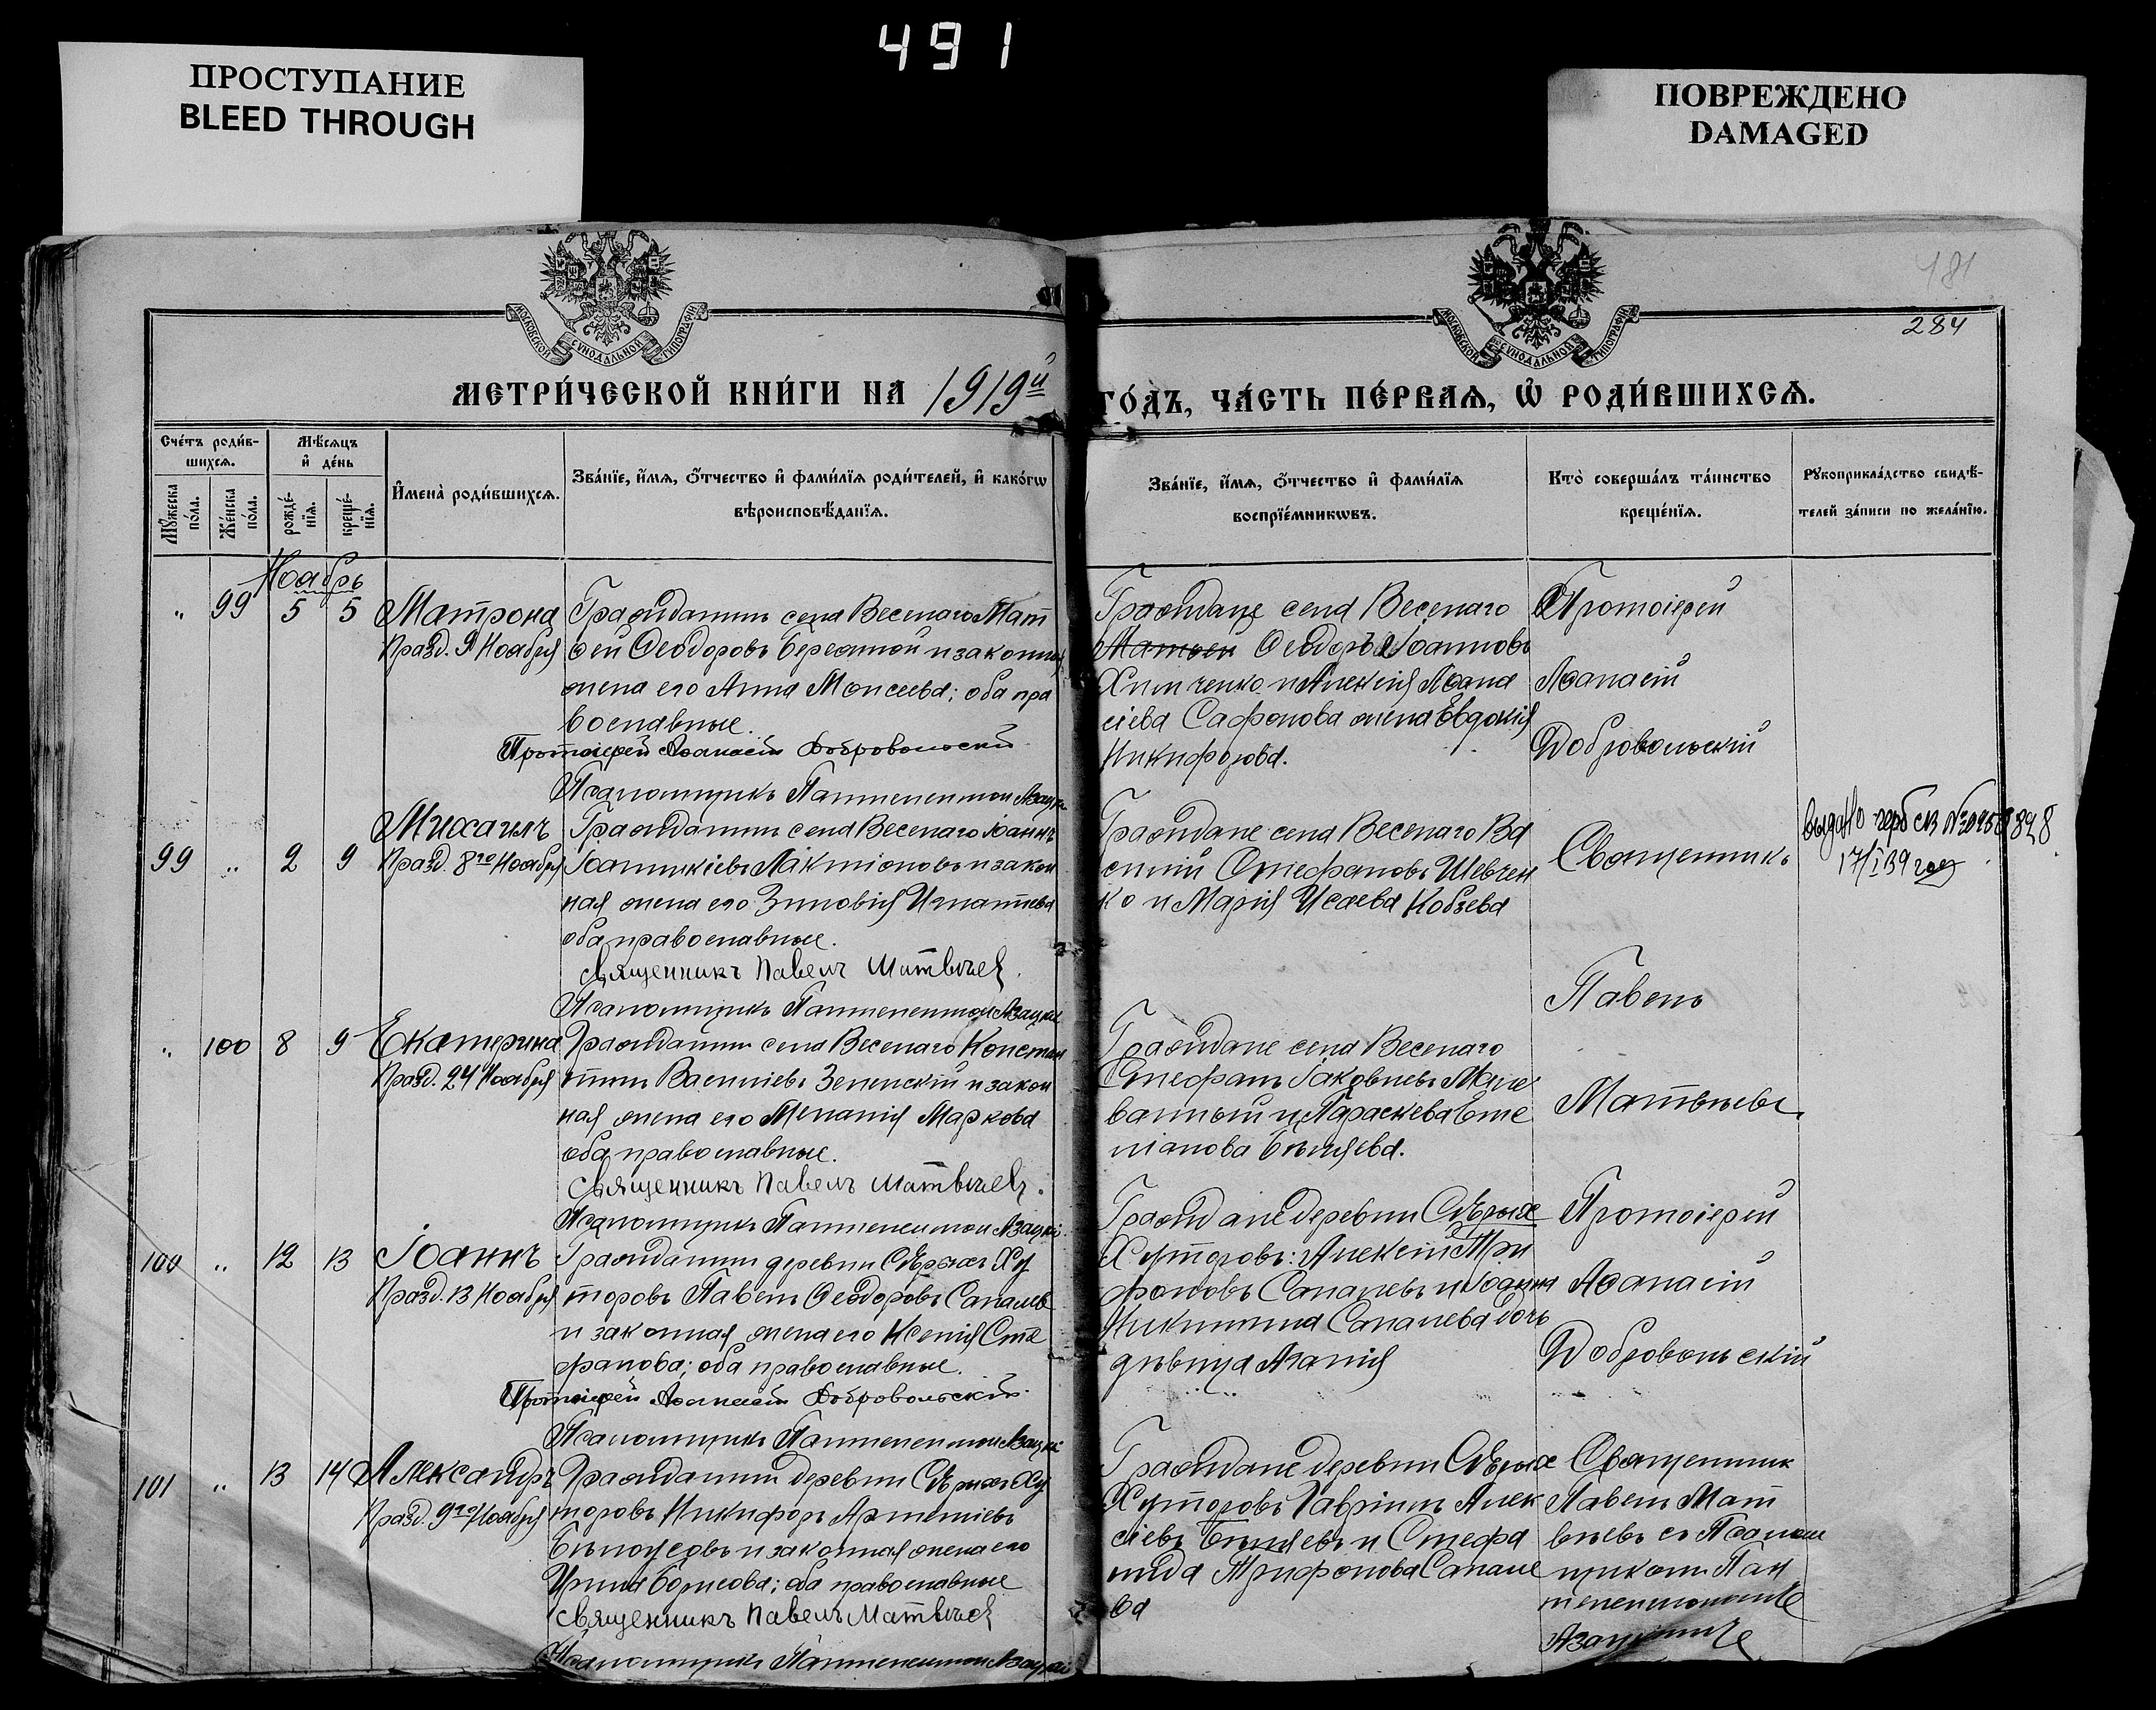 491
ПРОСТУПАНИЕ
BLEED THROUGH
ПОВРЕЖДЕНО
DAMAGED
МОСКОВСКОЙ СѴНОДАЛЬНОЙ ТИПОГРАФІИ
МОСКОВСКОЙ СѴНОДАЛЬНОЙ ТИПОГРАФІИ
181
284
МЕТРИ́ЧЕСКОЙ КНИ́ГИ НА 1919й
ГО́ДЪ, ЧА́СТЬ ПЕ́РВАѦ, Ѡ҆ РОДИ́ВШИХСѦ.
Сче́тъ роди́в-
шихсѧ.
Мꙋ́жеска по́ла.
Же́нска по́ла.
Мѣ́сѧцъ
и҆ де́нь
рожде́-
нїѧ.
креще́-
нїѧ.
И҆мена̀ роди́вшихсѧ.
Зва́нїе, и҆́мѧ, ѻ҆́тчество и҆ фами́лїѧ роди́телей, и҆ како́гѡ
вѣроисповѣ́данїѧ.
Зва́нїе, и҆́мѧ, ѻ҆́тчество и҆ фами́лїѧ
воспрїе́мникѡвъ.
Кто̀ соверша́лъ та́инство
креще́нїѧ.
Рꙋкоприкла́дство свидѣ́-
телей за́писи по жела́нїю.
Ноябрь
„ 99 5 5 Матрона
Празд. 9 Ноября
Гражданинъ села Веселаго Мат
ѳей Ѳеодоровъ Бережной и законная
жена его Анна Моисеева; оба пра
вославные.
Протоіерей Аѳанасій Добровольскій
Псаломщикъ Пантелеимон Азацкій
Граждане села Веселаго
Матѳей Ѳеодоръ Іоанновъ
Химченко и Алексія Аѳана
сіева Сафонова жена Евдокія
Никифорова.
Протоіерей
Аѳанасій
Добровольскій
99 „ 2 9 Михаилъ
Празд. 8го Ноября
Гражданинъ села Веселаго Іоаннъ
Іоанникіевъ Лактіоновъ и закон
ная жена его Зиновія Игнатьева
оба православные.
Священникъ Павелъ Матвѣевъ.
Псаломщикъ Пантелеимон Азацкій
Граждане села Веселаго Ва
силій Стефановъ Шевчен
ко и Марія Исаева Кобзева
Священникъ
Павелъ
Матвѣевъ.
17/I 39 год
„ 100 8 9 Екатерина
Празд. 24 Ноября
Гражданинъ села Веселаго Констан
тинъ Василіевъ Зеленскій и закон
ная жена его Меланія Маркова
оба православные.
Священникъ Павелъ Матвѣевъ.
Псаломщикъ Пантелеимон Азацкій
Граждане села Веселаго
Стефанъ Іаковлевъ Мале
ванный и Параскева Еме
ліанова Бѣляева.
100 „ 12 13 Іоаннъ
Празд. 13 Ноября
Гражданинъ деревни Сѣрыхъ Ху
торовъ Павелъ Ѳеодоровъ Сапалев
и законная жена его Ксенія Сте
фанова; оба православные.
Протоіерей Аѳанасій Добровольскій.
Псаломщикъ Пантелеимон Азацкій
Граждане деревни Сѣрыхъ
Хуторовъ: Алексій Три
фоновъ Сапалевъ и Іоанна
Никитина Сапалева дочь
дѣвица Агаѳія
Протоіерей
Аѳанасій
Добровольскій
101 „ 13 14 Александръ
Празд. 9го Ноября
Гражданинъ деревни Сѣрыхъ Ху
торовъ Никифоръ Артеміевъ
Бѣлоусовъ и законная жена его
Ирина Борисова; оба православные
Священникъ Павелъ Матвѣевъ
Псаломщикъ Пантелеимон Азацкій
Граждане деревни Сѣрыхъ
Хуторовъ Гавріилъ Алек
сіевъ Бѣляевъ и Стефа
нида Трифонова Сапале
ва
Священник
Павелъ Мат
вѣевъ съ Псалом
щиком Пан
телеимономъ